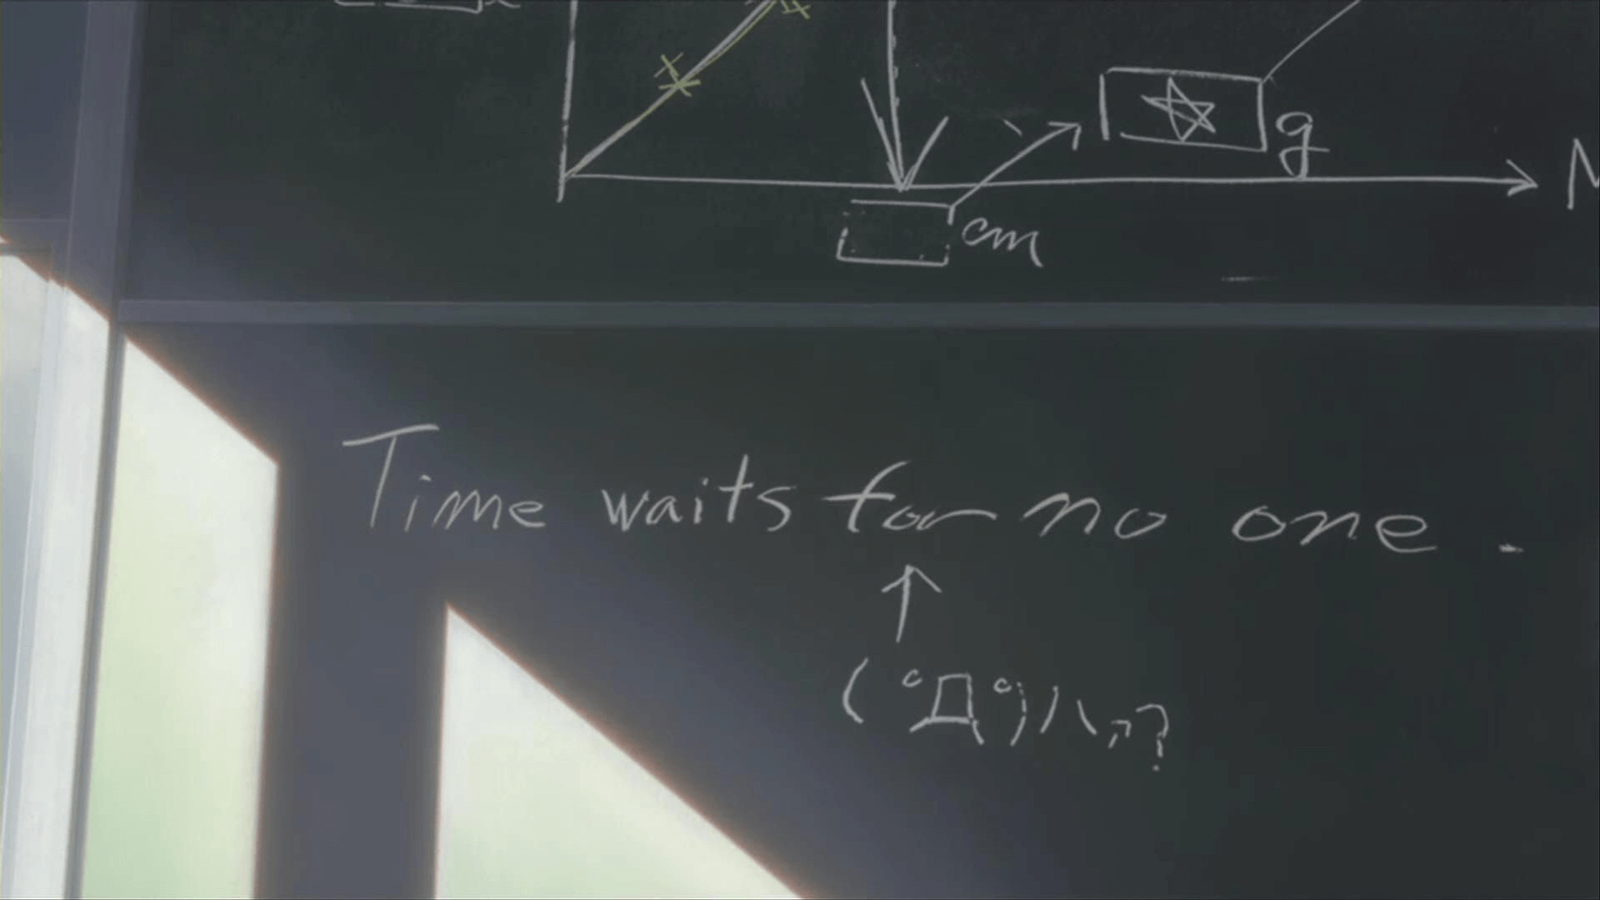 x
x
g
cm
Time waits for no one.
↑
(ﾟДﾟ)ハァ?